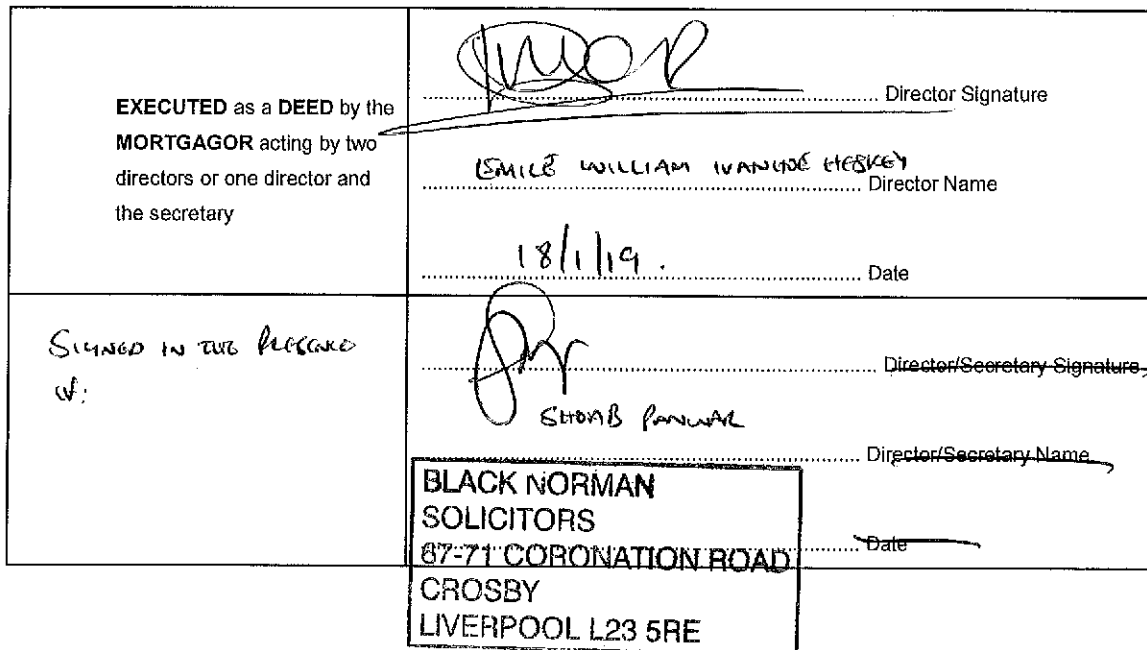 EXECUTED as a DEED by the
MORTGAGOR acting by two
directors or one director and
the secretary
Director Signature
EMILE WILLIAM IVANHOE HESKEY
Director Name
18/1/19.
Date
SIGNED IN THE PRESENCE
OF:
Director/Secretary Signature
SHOAIB PANWAR
Director/Secretary Name
Date
BLACK NORMAN
SOLICITORS
67-71 CORONATION ROAD
CROSBY
LIVERPOOL L23 5RE